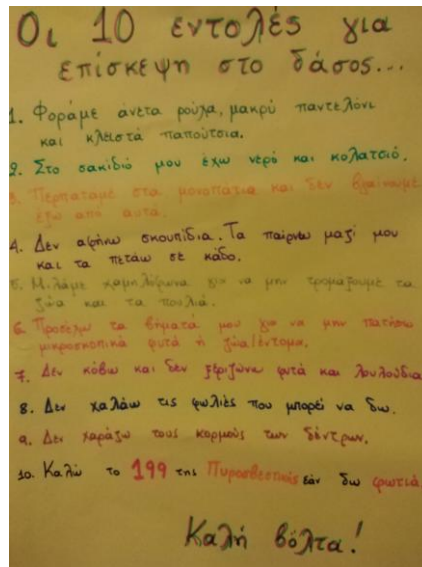 Οι 10 εντολές για
επίσκεψη στο δάσος...
1. Φοράμε άνετα ρούχα, μακρύ παντελόνι
και κλειστά παπούτσια.
2. Στο σακίδιό μου έχω νερό και κολατσιό.
3. Περπατάμε στα μονοπάτια και δεν βγαίνουμε
έξω από αυτά.
4. Δεν αφήνω σκουπίδια. Τα παίρνω μαζί μου
και τα πετάω σε κάδο.
5. Μιλάμε χαμηλόφωνα για να μην τρομάξουμε τα
ζώα και τα πουλιά.
6. Προσέχω τα βήματά μου για να μην πατήσω
μικροσκοπικά φυτά ή ζώα/έντομα.
7. Δεν κόβω και δεν ξεριζώνω φυτά και λουλούδια
8. Δεν χαλάω τις φωλιές που μπορεί να δω.
9. Δεν χαράζω τους κορμούς των δέντρων.
10. Καλώ το 199 της Πυροσβεστικής εάν δω φωτιά
Καλή βόλτα!